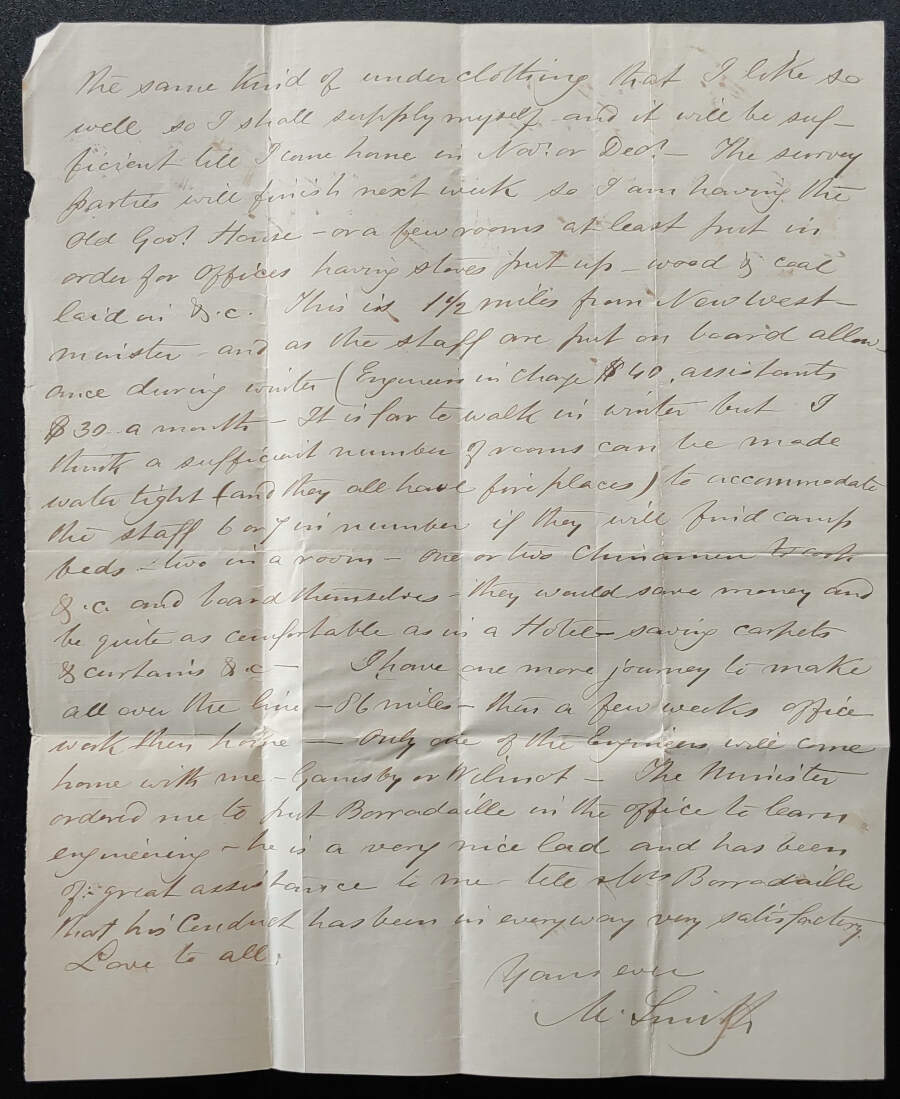 the same kind of underclothing that I like so
well so I shall supply myself and it will be suf-
ficient till I come home in Novr or Decr - The survey
parties will finish next week so I am having the
old Govt House - or a few rooms at least put in
order for offices having stoves put up - wood & coal
laid in &.c. This is 1 1/2 miles from New West-
minster - and as the staff are put on board allow-
ance during winter (Engineers in charge $40, assistants
$30 a month - It is far to walk in winter but I
think a sufficient number of rooms can be made
water tight (and they all have fire places) to accommodate
the staff 6 or 7 in number if they will find camp
beds - two in a room - one or two Chinamen to cook
&.c. and board themselves - they would save money and
be quite as comfortable as in a Hotel - saving carpets
& curtains &c - I have one more journey to make
all over the line - 86 miles - then a few weeks office
work then home - Only one of the Engineers will come
home with me - Gamsby or Wilmot - The Minister
ordered me to put Borradaille in the office to learn
engineering - he is a very nice lad and has been
of great assistance to me - tell Mrs Borradaille
that his conduct has been in everyway very satisfactory.
Love to all.
Yours ever
M. Smith